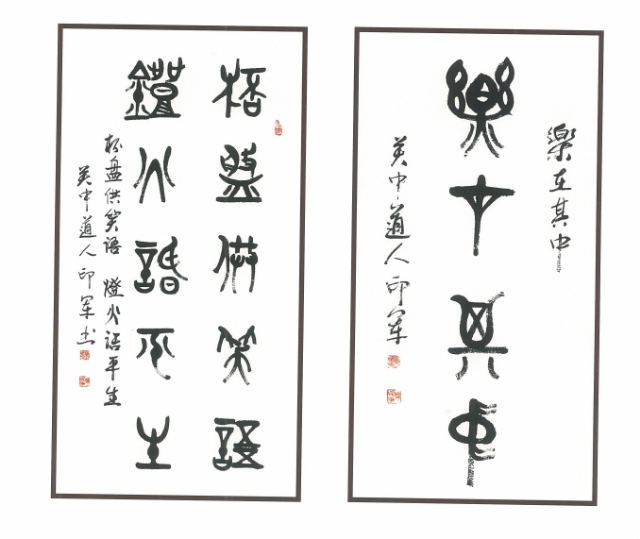 樂在其中
樂在其中
关中道人印军
桮盤供笑語
鐙火話平生
杯盘供笑语 燈火话平生
关中道人印军书